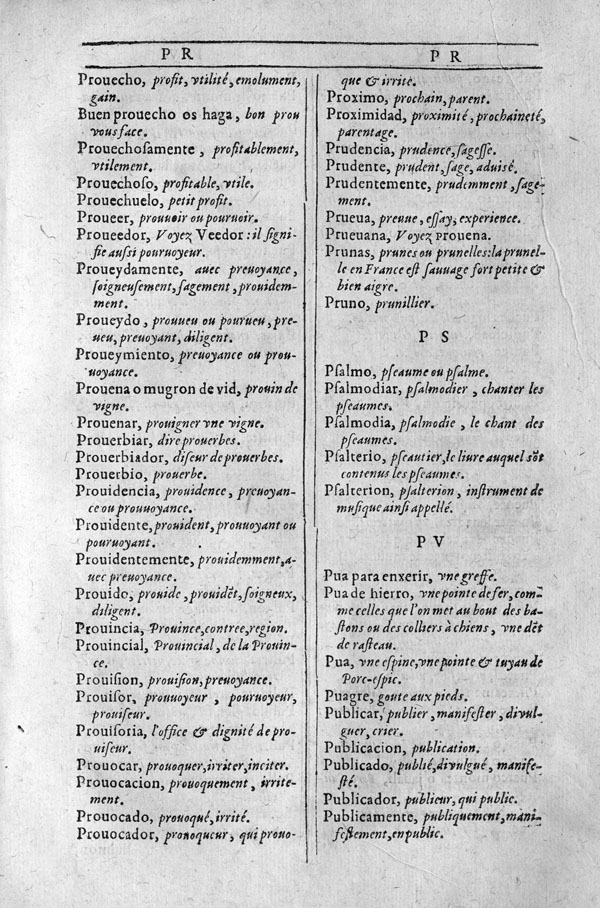 P R
Prouecho, profit, vtilité, emolument,
gain.
Buen prouecho os haga, bon prou
vous face.
Prouechosamente, profitablement,
vtilement.
Prouechoſo, profitable, vtile.
Prouechuelo, petit profit.
Proueer, prouuoir ou pouruoir.
Proueedor, Voyez Veedor: il ſigni-
fie auſsi pouruoyeur.
Proueydamente, auec preuoyance,
ſoigneuſement, ſagement, prouidem-
ment.
Proueydo, prouueu ou pourueu, pre-
ueu, preuoyant, diligent.
Proueymiento, preuoyance ou prou-
uoyance.
Prouena o mugron de vid, prouin de
vigne.
Prouenar, prouigner vne vigne.
Prouerbiar, dire prouerbes.
Prouerbiador, diſeur de prouerbes.
Prouerbio, prouerbe.
Prouidencia, prouidence, preuoyan-
ce ou prouuoyance.
Prouidente, prouident, prouuoyant ou
pouruoyant.
Prouidentemente, prouidemment, a-
uec preuoyance.
Prouido, prouide, prouidẽt, ſoigneux,
diligent.
Prouincia, Prouince, contree, region.
Prouincial, Prouincial, de la Prouin-
ce.
Prouiſion, prouiſion, preuoyance.
Prouiſor, prouuoyeur, pouruoyeur,
prouiſeur.
Prouiſoria, l'office & dignité de pro-
uiſeur.
Prouocar, prouoquer, irriter, inciter.
Prouocacion, prouoquement, irrite-
ment.
Prouocado, prouoqué, irrité.
Prouocador, prouoqueur, qui prouo-
P R
que & irrite.
Proximo, prochain, parent.
Proximidad, proximité, prochaineté,
parentage.
Prudencia, prudence, ſageſſe.
Prudente, prudent, ſage, aduiſé.
Prudentemente, prudemment, ſage-
ment.
Prueua, preuue, eſſay, experience.
Prueuana, Voyez prouena.
Prunas, prunes ou prunelles: la prunel-
le en France eſt ſauuage fort petite &
bien aigre.
Pruno, prunillier.
P S
Pſalmo, pſeaume ou pſalme.
Pſalmodiar, pſalmodier, chanter les
pſeaumes.
Pſalmodia, pſalmodie, le chant des
pſeaumes.
Pſalterio, pſeautier, le liure auquel sõt
contenus les pſeaumes.
Pſalterion, pſalterion, inſtrument de
muſique ainſi appellé.
P V
Pua para enxerir, vne greffe.
Pua de hierro, vne pointe de fer, com-
me celles que l'on met au bout des ba-
ſtons ou des colliers à chiens, vne dẽt
de raſteau.
Pua, vne eſpine, vne pointe & tuyau de
Porc-eſpic.
Puagre, goute aux pieds.
Publicar, publier, manifeſter, diuul-
guer, crier.
Publicacion, publication.
Publicado, publié, diuulgué, manife-
ſté.
Publicador, publieur, qui public.
Publicamente, publiquement, mani-
feſtement, en public.